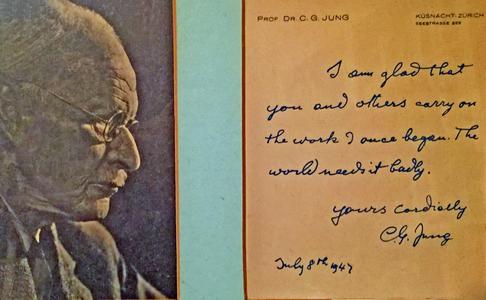 PROF. DR. C. G. JUNG
KÜSNACHT-ZÜRICH
SEESTRASSE 228
I am glad that
you and others carry on
the work I once began. The
world needs it badly.
yours cordially
C.G. Jung
July 8th 1947